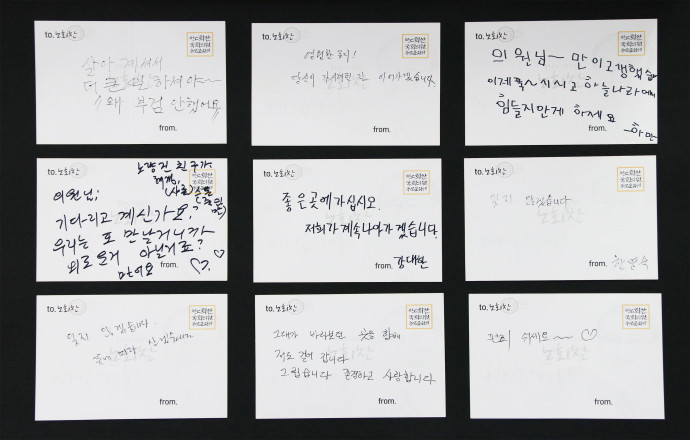 to. 노회찬
살아 계셔서
더 큰 일 하셔야~
왜 부검 안했어요
from.
to. 노회찬
영원한 동지!
from.
의원님~ 많이고생했습
이제 푹~ 쉬시고 하늘나라에서
힘들지안게 하세요
from.
to. 노회찬
노량진 친구가
의원님;
기다리고 계신가요?
우리는 또 만날거니까
외로운거 아닐거죠?
from. ♡
to. 노회찬
좋은곳에가십시오.
저희가계속나아가겠습니다.
from. 강대현
to. 노회찬
잊지 않겠습니다
노회찬
from.
to. 노회찬
잊지 않겠습니다.
from.
to. 노회찬
그대가 바라보던 곳을 향해
저도 걸어 갑니다
그립습니다 존경하고 사랑합니다
from.
to. 노회찬
편히 쉬세요~ ♡
노회찬
from.